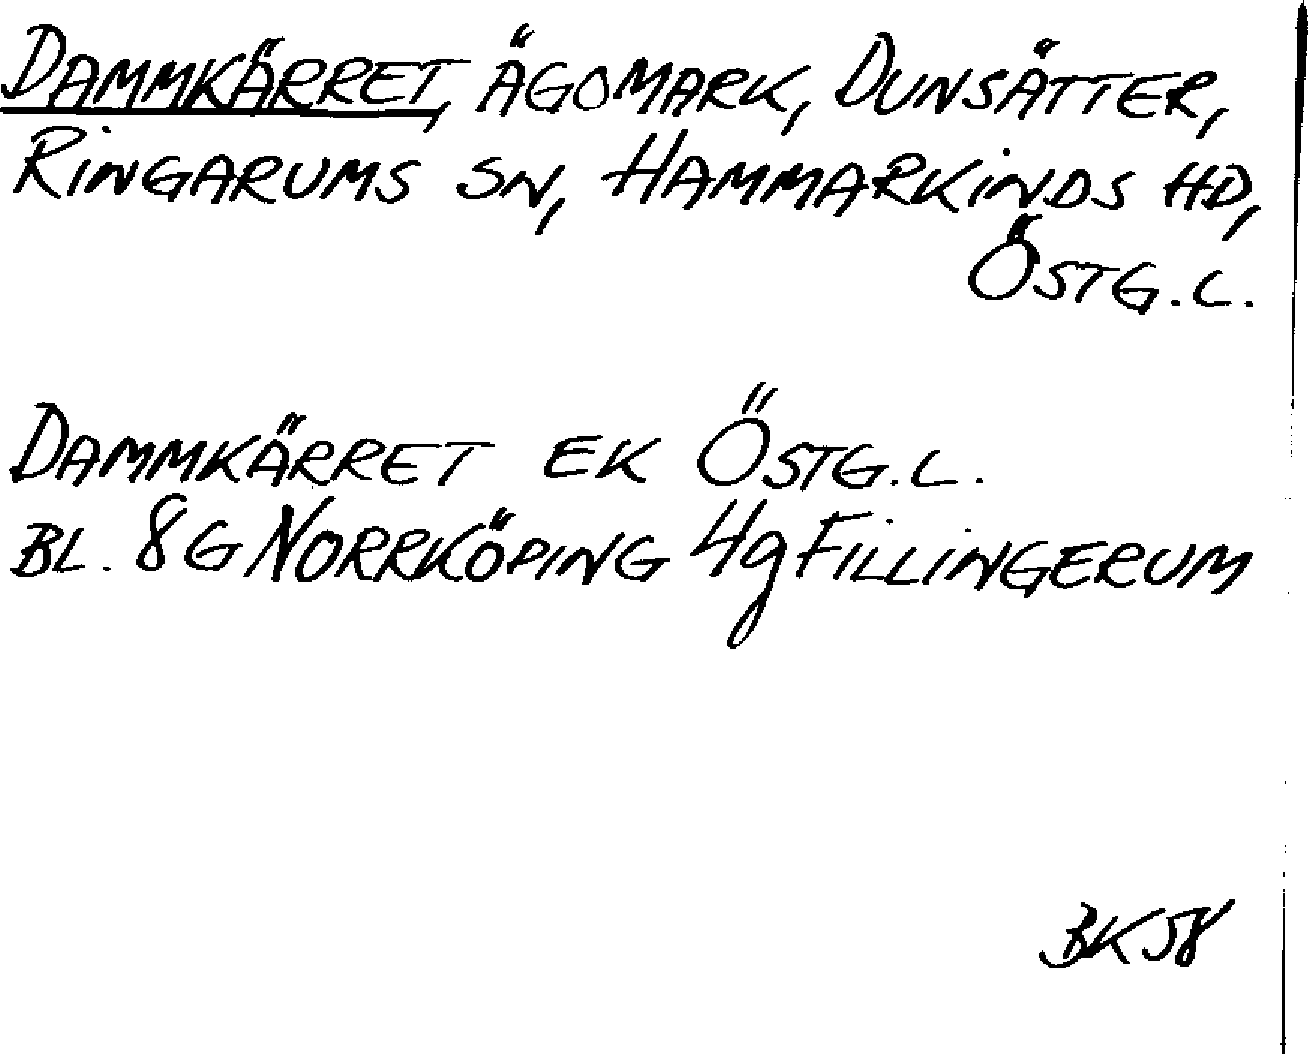 DAMMKÄRRET, ÄGOMARK, DUNSÄTTER,
RINGARUMS SN, HAMMARKINDS HD,
ÖSTG.L.
DAMMKÄRRET EK ÖSTG.L.
BL. 8G NORRKÖPING 4g FILLINGERUM
BK58